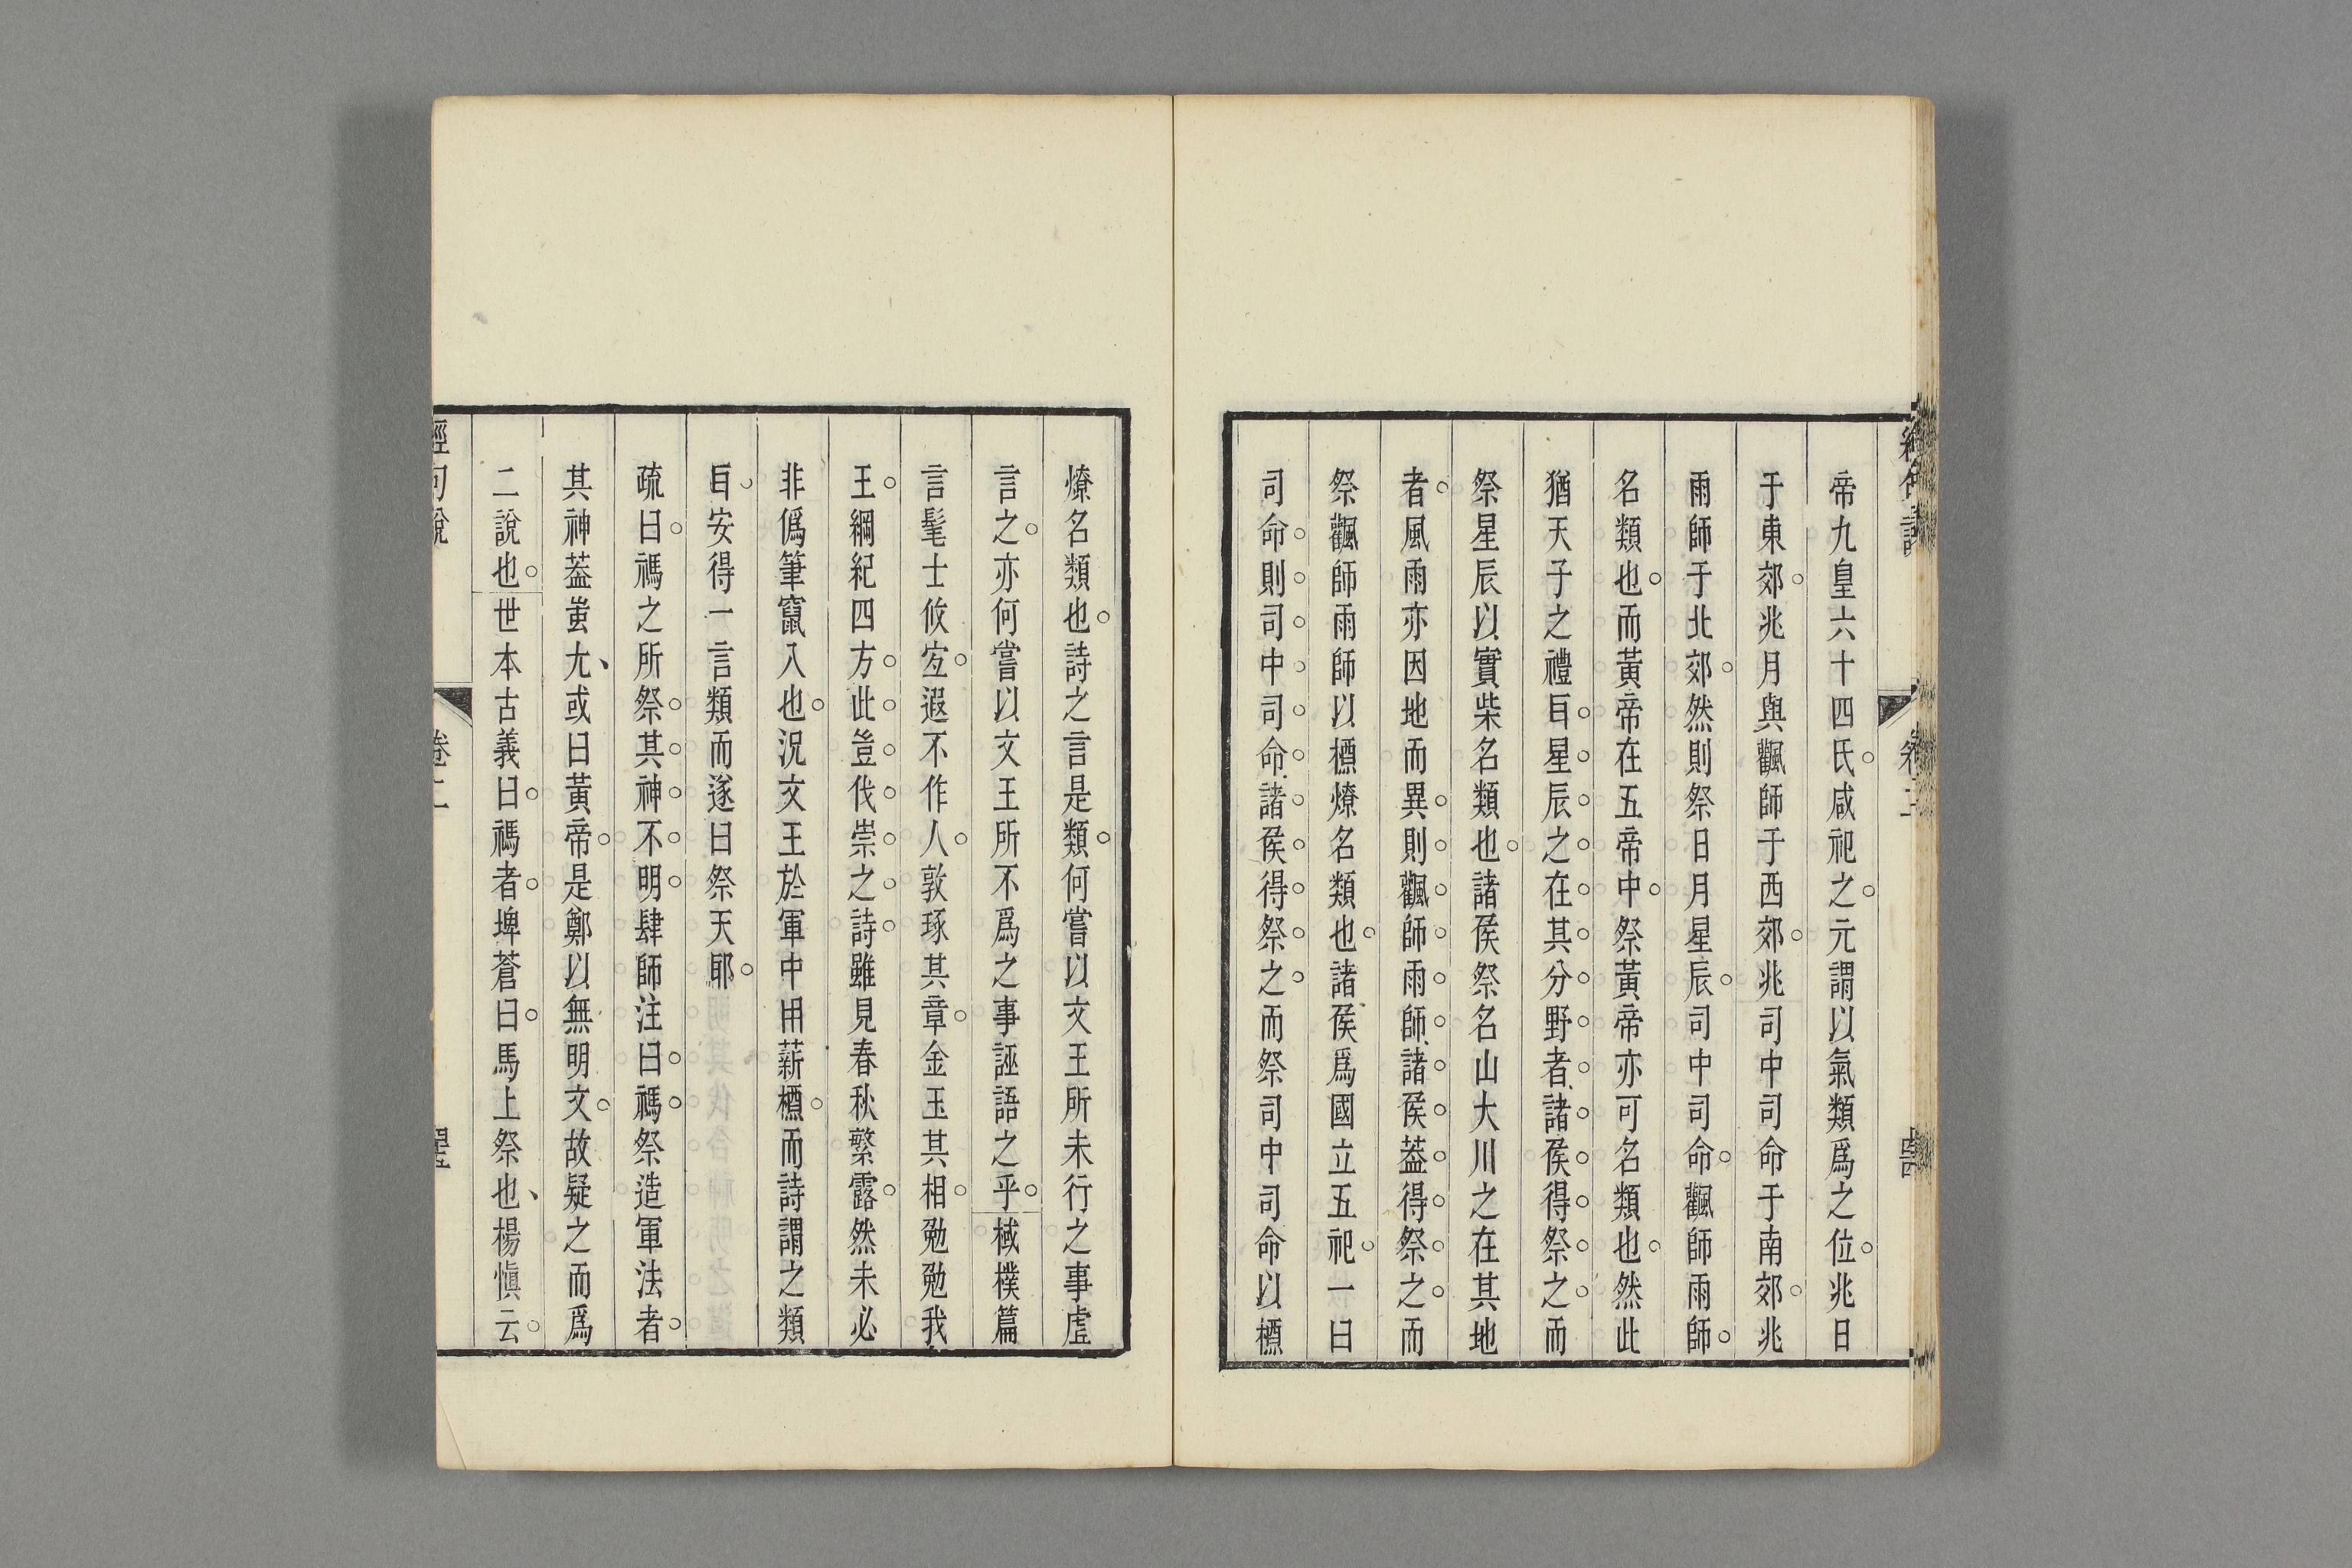 帝九皇六十四氏咸祀之元謂以氣類爲之位兆日
于東郊兆月與飌師于西郊兆司中司命于南郊兆
雨師于北郊然則祭日月星辰司中司命飌師雨師
名類也而黃帝在五帝中祭黃帝亦可名類也然此
猶天子之禮㠯星辰之在其分野者諸侯得祭之而
祭星辰以實柴名類也諸侯祭名山大川之在其地
者風雨亦因地而異則飌師雨師諸侯葢得祭之而
祭飌師雨師以槱燎名類也諸侯爲國立五祀一曰
司命則司中司命諸侯得祭之而祭司中司命以槱
燎名類也詩之言是類何嘗以文王所未行之事虛
言之亦何嘗以文王所不爲之事誣語之乎棫樸篇
言髦士攸宐遐不作人敦琢其章金玉其相勉勉我
王綱紀四方此豈伐崇之詩雖見春秋繁露然未必
非僞筆竄入也況文王於軍中用薪槱而詩謂之類
㠯安得一言類而遂曰祭天耶
疏曰禡之所祭其神不明肆師注曰禡祭造軍法者
其神葢蚩尤或曰黃帝是鄭以無明文故疑之而爲
二說也世本古義曰禡者埤蒼曰馬上祭也楊愼云
經句說
卷二